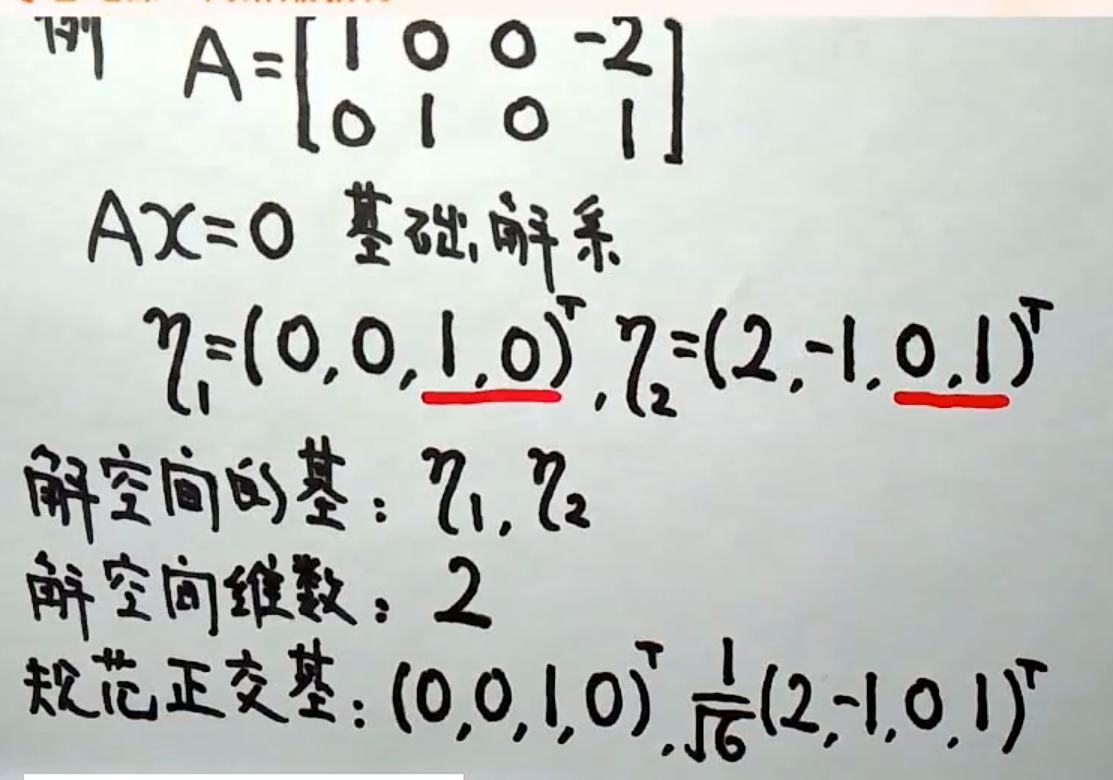 例 A=[1 0 0 -2
0 1 0 1]
Ax=0 基础解系
η₁=(0,0,1,0)ᵀ,η₂=(2,-1,0,1)ᵀ
解空间的基:η₁,η₂
解空间维数:2
规范正交基:(0,0,1,0)ᵀ,1/√6(2,-1,0,1)ᵀ